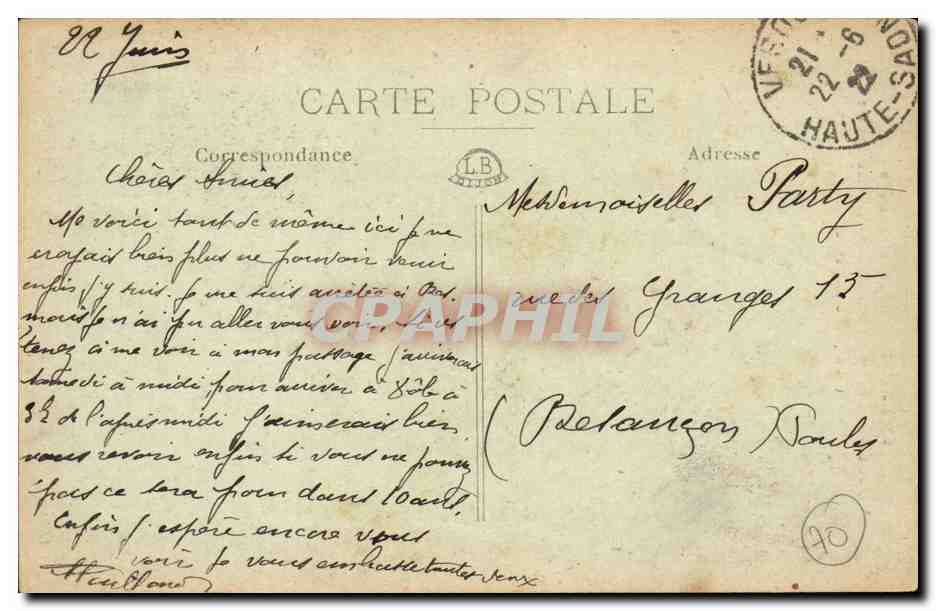 22 Juin
CARTE POSTALE
Correspondance
Adresse
L.B
DIJON
21 - 6
22 22
HAUTE-SAONE
Chères Amies,
Me voici tant de même ici je ne
croyais bien plus ne pouvoir venir
enfin j'y suis. Je me suis arrêtée à Bes.
mais je n'ai pu aller vous voir, si vs
tenez à me voir à mon passage j'arriverais
samedi à midi, pour arriver à Dôle à
3h de l'après midi j'aimerais bien
vous revoir enfin si vous ne pouvez
pas ce sera pour dans 10 ans.
Enfin j'espère encore vous
voir je vous embrasse toutes deux
Mesdemoiselles Party
rue des Granges 13
(Besançon) Doubs
CPAPHIL
70